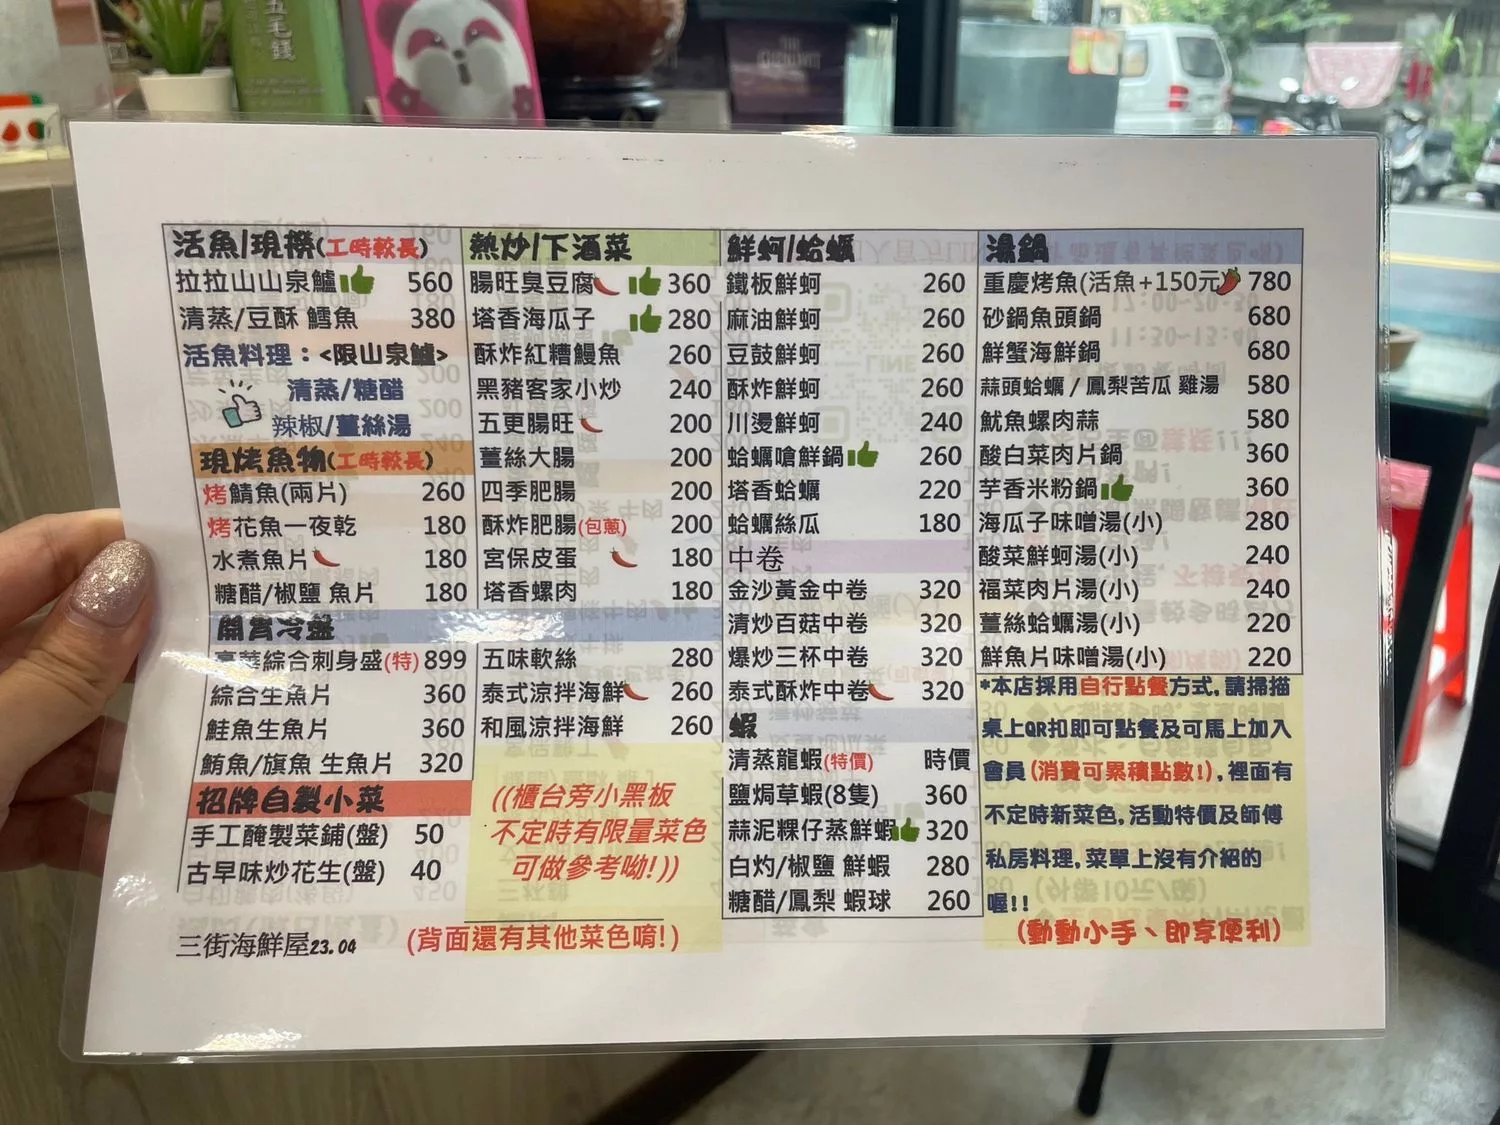 五毛錢
活魚/現撈(工時較長)
拉拉山山泉鱸 560
清蒸/豆酥 鱈魚 380
活魚料理：<限山泉鱸>
清蒸/糖醋
辣椒/薑絲湯
現烤魚物(工時較長)
烤鯖魚(兩片) 260
烤花魚一夜乾 180
水煮魚片 180
糖醋/椒鹽 魚片 180
開胃冷盤
豪華綜合刺身盛(特) 899
綜合生魚片 360
鮭魚生魚片 360
鮪魚/旗魚 生魚片 320
招牌自製小菜
手工醃製菜鋪(盤) 50
古早味炒花生(盤) 40
三街海鮮屋23.04
熱炒/下酒菜
腸旺臭豆腐 360
塔香海瓜子 280
酥炸紅糟鰻魚 260
黑豬客家小炒 240
五更腸旺 200
薑絲大腸 200
四季肥腸 200
酥炸肥腸(包蔥) 200
宮保皮蛋 180
塔香螺肉 180
五味軟絲 280
泰式涼拌海鮮 260
和風涼拌海鮮 260
((櫃台旁小黑板
不定時有限量菜色
可做參考呦!))
(背面還有其他菜色唷!)
鮮蚵/蛤蠣
鐵板鮮蚵 260
麻油鮮蚵 260
豆鼓鮮蚵 260
酥炸鮮蚵 260
川燙鮮蚵 240
蛤蠣嗆鮮鍋 260
塔香蛤蠣 220
蛤蠣絲瓜 180
中卷
金沙黃金中卷 320
清炒百菇中卷 320
爆炒三杯中卷 320
泰式酥炸中卷 320
蝦
清蒸龍蝦(特價) 時價
鹽焗草蝦(8隻) 360
蒜泥粿仔蒸鮮蝦 320
白灼/椒鹽 鮮蝦 280
糖醋/鳳梨 蝦球 260
湯鍋
重慶烤魚(活魚+150元) 780
砂鍋魚頭鍋 680
鮮蟹海鮮鍋 680
蒜頭蛤蠣 / 鳳梨苦瓜 雞湯 580
魷魚螺肉蒜 580
酸白菜肉片鍋 360
芋香米粉鍋 360
海瓜子味噌湯(小) 280
酸菜鮮蚵湯(小) 240
福菜肉片湯(小) 240
薑絲蛤蠣湯(小) 220
鮮魚片味噌湯(小) 220
*本店採用自行點餐方式,請掃描
桌上QR扣即可點餐及可馬上加入
會員(消費可累積點數!),裡面有
不定時新菜色,活動特價及師傅
私房料理,菜單上沒有介紹的
喔!!
(動動小手、即享便利)